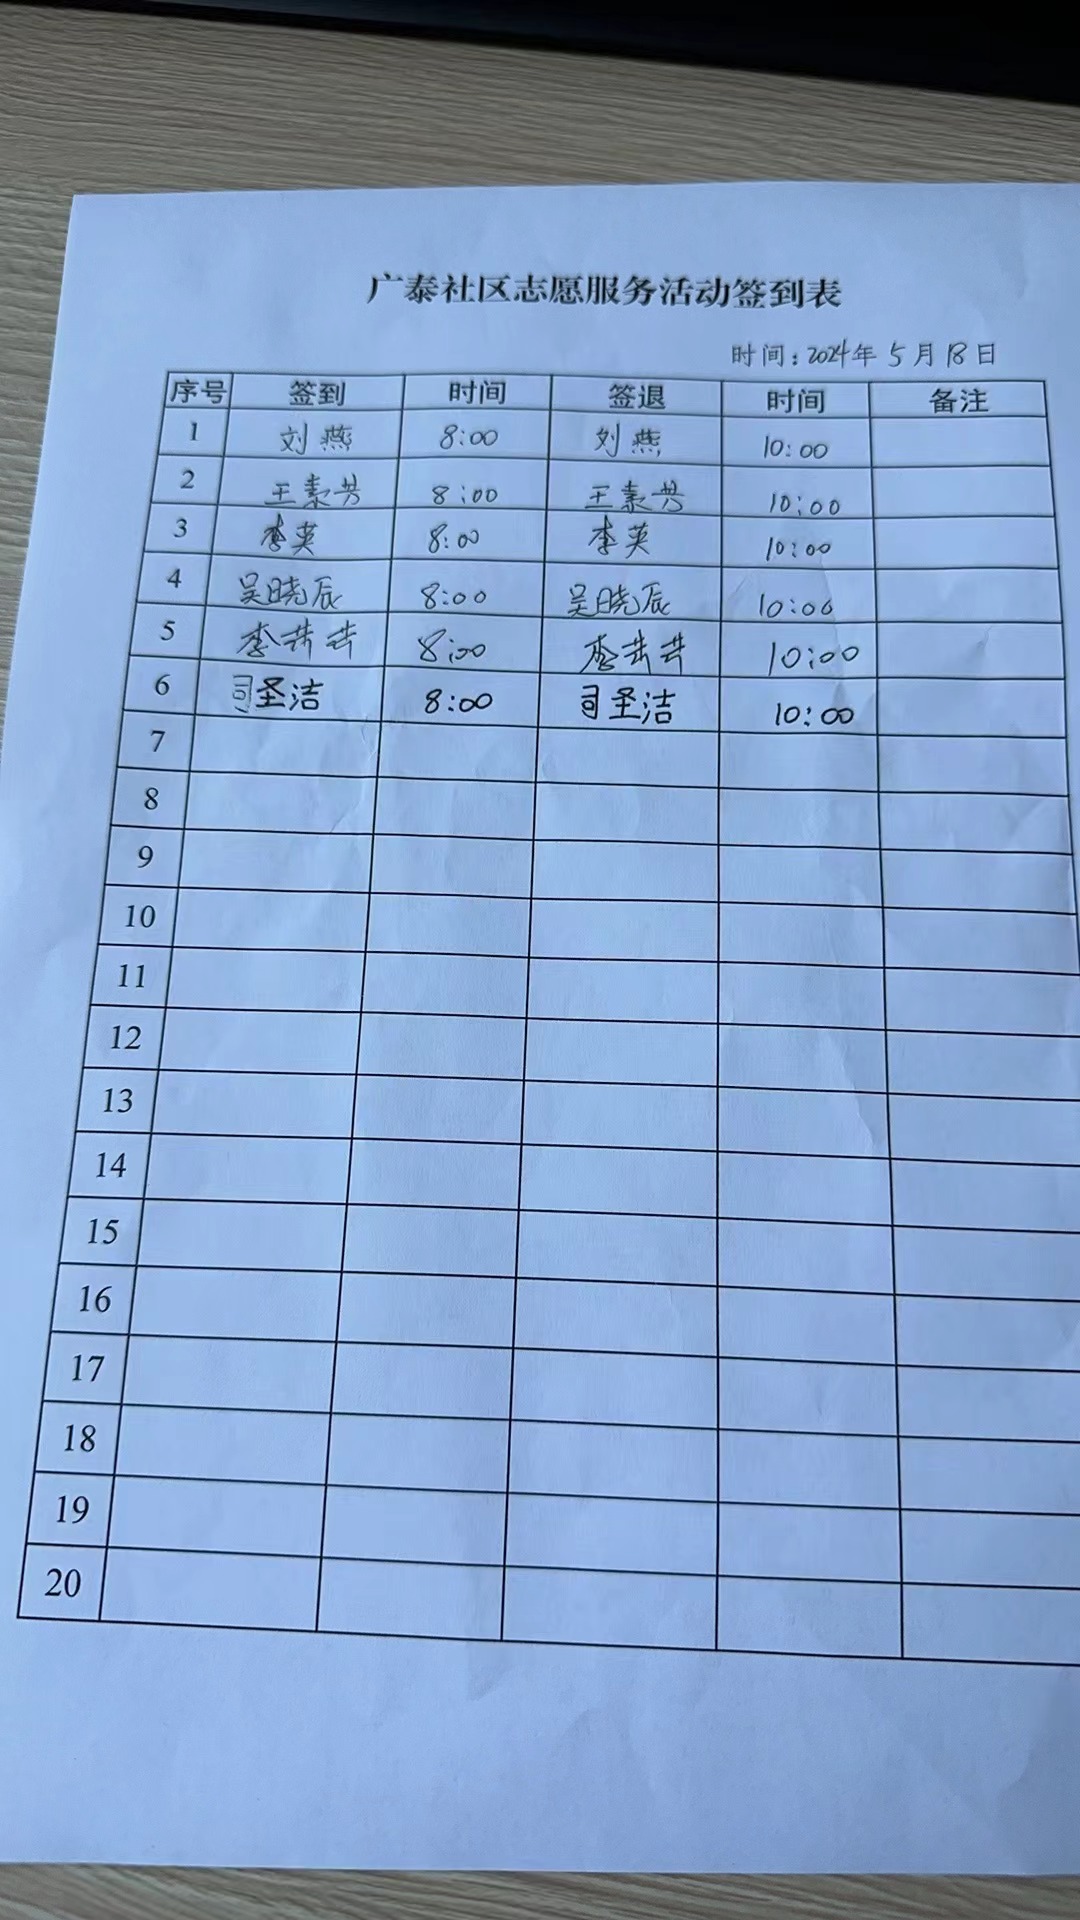 广泰社区志愿服务活动签到表
时间:2024年5月18日
序号 签到 时间 签退 时间 备注
1 刘燕 8:00 刘燕 10:00
2 王素芳 8:00 王素芳 10:00
3 李英 8:00 李英 10:00
4 吴晓辰 8:00 吴晓辰 10:00
5 李 8:00 李 10:00
6 司圣洁 8:00 司圣洁 10:00
7
8
9
10
11
12
13
14
15
16
17
18
19
20